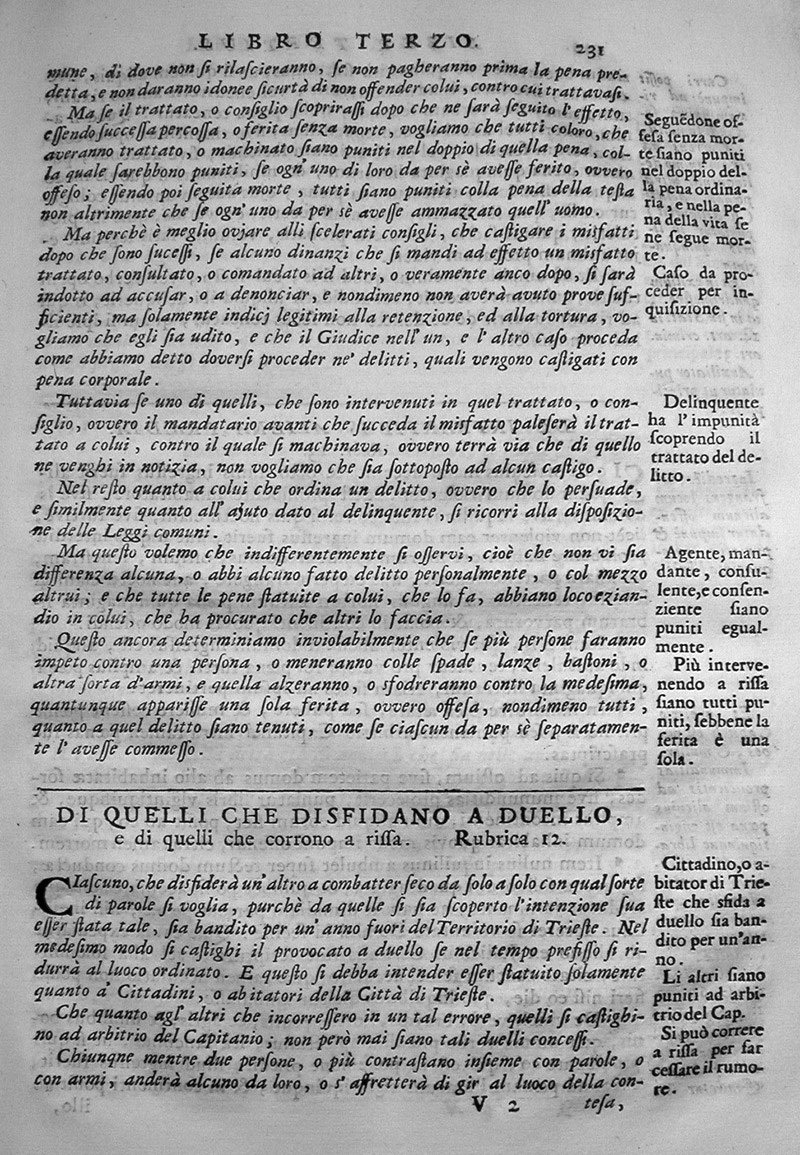 LIBRO TERZO.
231
mune, di dove non ſi rilaſcieranno, ſe non pagheranno prima la pena pre-
detta, e non daranno idonee ſicurtà di non offender colui, contro cui trattavaſi.
Ma ſe il trattato, o conſiglio ſcopriraſſi dopo che ne ſarà ſeguito l'effetto,
eſſendo ſucceſſa percoſſa, o ferita ſenza morte, vogliamo che tutti coloro, che
averanno trattato, o machinato ſiano puniti nel doppio di quella pena, col-
la quale ſarebbono puniti, ſe ogn'uno di loro da per sè aveſſe ferito, ovvero
offeſo; eſſendo poi ſeguita morte, tutti ſiano puniti colla pena della teſta
non altrimente che ſe ogn'uno da per sè aveſſe ammazzato quell'uomo.
Seguẽdone of-
feſa ſenza mor-
te ſiano puniti
nel doppio del-
la pena ordina-
ria, e nella pe-
na della vita ſe
ne ſegue mor-
te.
Ma perchè è meglio ovjare alli ſcelerati conſigli, che caſtigare i misfatti
dopo che ſono ſuceſſi, ſe alcuno dinanzi che ſi mandi ad effetto un misfatto
trattato, conſultato, o comandato ad altri, o veramente anco dopo, ſi ſarà
indotto ad accuſar, o a denonciar, e nondimeno non averà avuto prove ſuf-
ficienti, ma ſolamente indicj legitimi alla retenzione, ed alla tortura, vo-
gliamo che egli ſia udito, e che il Giudice nell'un, e l'altro caſo proceda
come abbiamo detto doverſi proceder ne' delitti, quali vengono caſtigati con
pena corporale.
Caſo da pro-
ceder per in-
quiſizione.
Tuttavia ſe uno di quelli, che ſono intervenuti in quel trattato, o con-
ſiglio, ovvero il mandatario avanti che ſucceda il misfatto paleſerà il trat-
tato a colui, contro il quale ſi machinava, ovvero terrà via che di quello
ne venghi in notizia, non vogliamo che ſia ſottopoſto ad alcun caſtigo.
Delinquente
ha l'impunità
ſcoprendo il
trattato del de-
litto.
Nel reſto quanto a colui che ordina un delitto, ovvero che lo perſuade,
e ſimilmente quanto all'ajuto dato al delinquente, ſi ricorri alla diſpoſizio-
ne delle Leggi comuni.
Ma queſto volemo che indifferentemente ſi oſſervi, cioè che non vi ſia
differenza alcuna, o abbi alcuno fatto delitto perſonalmente, o col mezzo
altrui; e che tutte le pene ſtatuite a colui, che lo fa, abbiano loco ezian-
dio in colui, che ha procurato che altri lo faccia.
Agente, man-
dante, conſu-
lente, e conſen-
ziente ſiano
puniti egual-
mente.
Queſto ancora determiniamo inviolabilmente che ſe più perſone faranno
impeto contro una perſona, o meneranno colle ſpade, lanze, baſtoni, o
altra ſorta d'armi, e quella alzeranno, o sfodreranno contro la medeſima,
quantunque appariſſe una ſola ferita, ovvero offeſa, nondimeno tutti,
quanto a quel delitto ſiano tenuti, come ſe ciaſcun da per sè ſeparatamen-
te l'aveſſe commeſſo.
Più interve-
nendo a riſſa
ſiano tutti pu-
niti, ſebbene la
ferita è una
ſola.
DI QUELLI CHE DISFIDANO A DUELLO,
e di quelli che corrono a riſſa. Rubrica 12.
CIaſcuno, che disfiderà un'altro a combatter ſeco da ſolo a ſolo con qual ſorte
di parole ſi voglia, purchè da quelle ſi ſia ſcoperto l'intenzione ſua
eſſer ſtata tale, ſia bandito per un'anno fuori del Territorio di Trieſte. Nel
medeſimo modo ſi caſtighi il provocato a duello ſe nel tempo prefiſſo ſi ri-
durrà al luoco ordinato. E queſto ſi debba intender eſſer ſtatuito ſolamente
quanto a' Cittadini, o abitatori della Città di Trieſte.
Cittadino, o a-
bitator di Trie-
ſte che sfida a
duello ſia ban-
dito per un'an-
no.
Che quanto agl'altri che incorreſſero in un tal errore, quelli ſi caſtighi-
no ad arbitrio del Capitanio; non però mai ſiano tali duelli conceſſi.
Li altri ſiano
puniti ad arbi-
trio del Cap.
Chiunque mentre due perſone, o più contraſtano inſieme con parole, o
con armi, anderà alcuno da loro, o s'affretterà di gir al luoco della con-
Si può correre
a riſſa per far
ceſſare il rumo-
re.
V 2
teſa,